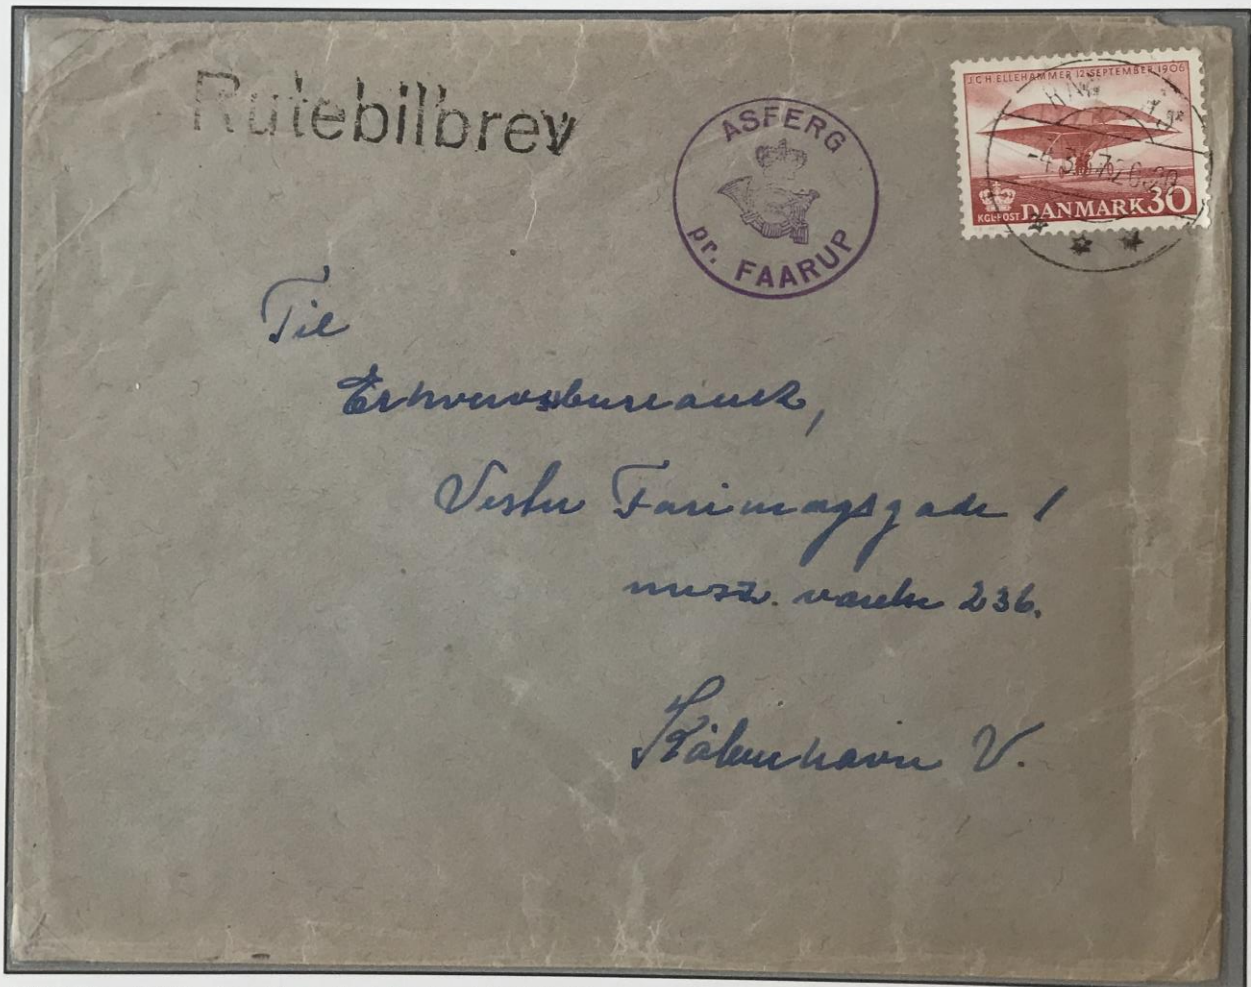 Rutebilbrev
ASFERG
pr. FAARUP
J.C.H ELLEHAMMER 12 SEPTEMBER 1906
-4.3.57.20
KGL-POST DANMARK 30
Til
Erhvervsbureauet,
Vester Farimagsgade 1
værelse 236.
København V.